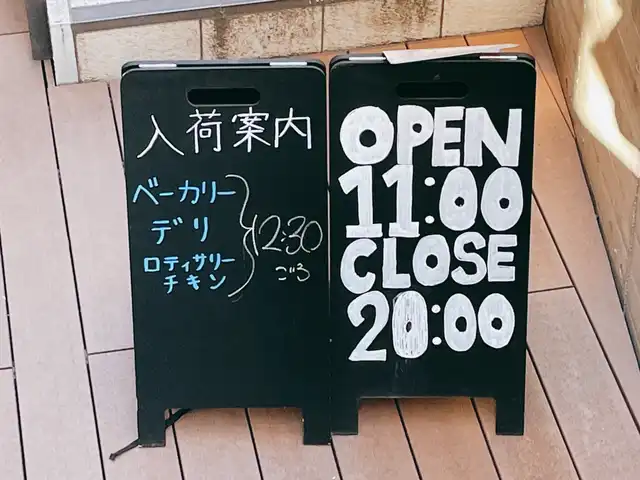 入荷案内
ベーカリー
デリ
ロティサリー
チキン
12:30
ごろ
OPEN
11:00
CLOSE
20:00